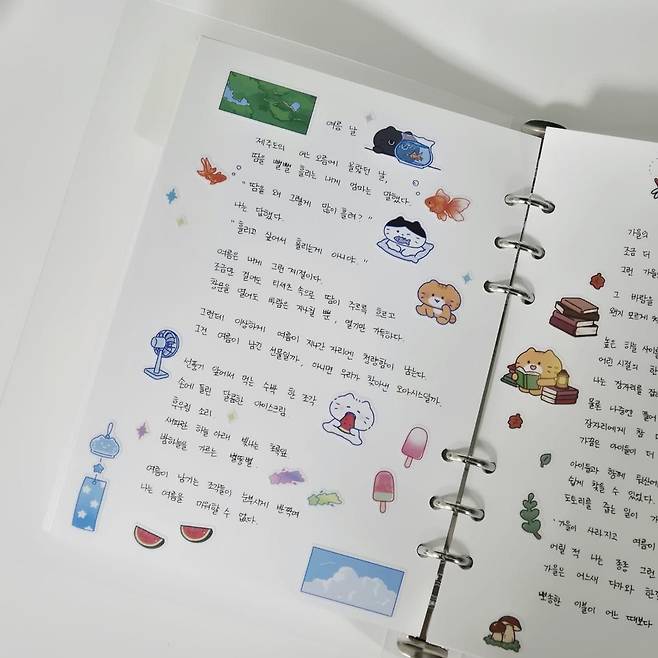 여름 날
제주도의 어느 오름에 올랐던 날,
땀을 뻘뻘 흘리는 내게 엄마는 말했다.
"땀을 왜 그렇게 많이 흘려?"
나는 답했다.
"흘리고 싶어서 흘리는게 아니야."
여름은 내게 그런 계절이다.
조금만 걸어도 티셔츠 속으로 땀이 주르륵 흐르고
창문을 열어도 바람은 지나칠 뿐, 열기만 가득하다.
그런데 이상하게 여름이 지나간 자리엔 청량함이 남는다.
그건 여름이 남긴 선물일까, 아니면 우리가 찾아낸 오아시스일까.
선풍기 앞에서 먹는 수박 한 조각
손에 들린 달콤한 아이스크림
후우링 소리
새파란 하늘 아래 빛나는 초록잎
밤하늘을 가르는 별똥별.
여름이 남기는 조각들이 눈부시게 반짝여
나는 여름을 미워할 수 없다.
가을의
조금 더
그런 가을
그 바람을
왠지 모르게
높은 하늘 사이
어린 시절의 한
나는 잠자리를
물론 나중엔
잠자리에게 참
가을은 아이들이 더
아이들과 함께
쉽게 찾을 수 있었다.
도토리를 줍는 일이
'가을이 사라지고 여름이
어릴 적 나는 종종 그런
가을은 어느새 다가와
뽀송한 이불이 어느 때보다